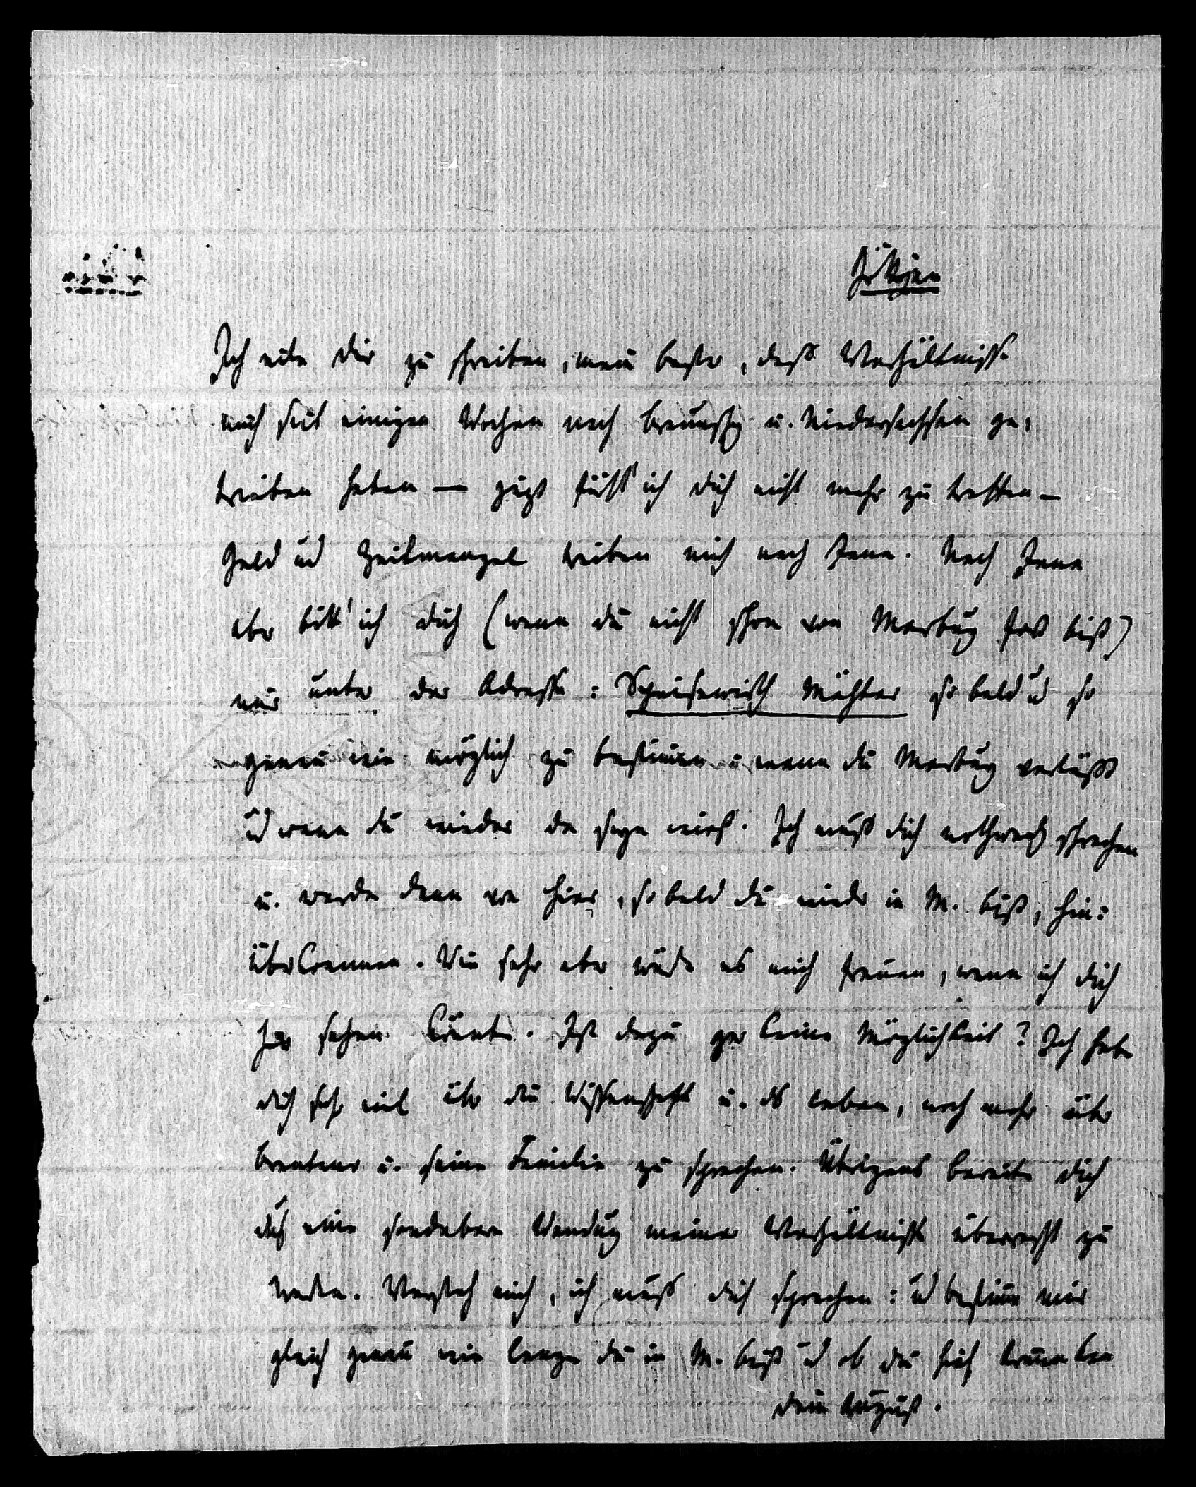 Göttgen
Ich eile dir zu schreiben, mein bester, daß Verhältniße
mich seit einigen Wochen nach Braunschg u. Niedersachsen ge:
trieben haben — jezt hofft ich dich nicht mehr zu treffen —
Geld ud Zeitmangel treiben mich nach Jena. Nach Jena
aber bitt' ich dich (wenn du nicht schon von Marburg fort bist)
mir unter der Adresse: Speisewirth Möhler so bald ud so
genau wie möglich zu bestimen, wann du Marburg verläßt
ud wann du wieder da seyn wirst. Ich muß dich nothwend sprechen
u. werde dann von hier, so bald du wieder in M. bist, hin:
über kommen. Wie sehr aber würde es mich freuen, wenn ich dich
hier sehen könnte. Ist dazu gar keine Möglichkeit? Ich habe
dich sehr viel über die Wissenschaft u. ds Leben, noch mehr über
Brentano u. seine Familie zu sprechen. Übrigens bereite dich
auf eine sonderbare Wendung meiner Verhältniße überrascht zu
werden. Versteh mich, ich muß dich sprechen: ud bestimme mir
gleich genau wie lange du in M. bist ud ob du hieher kommen kan
Dein August.